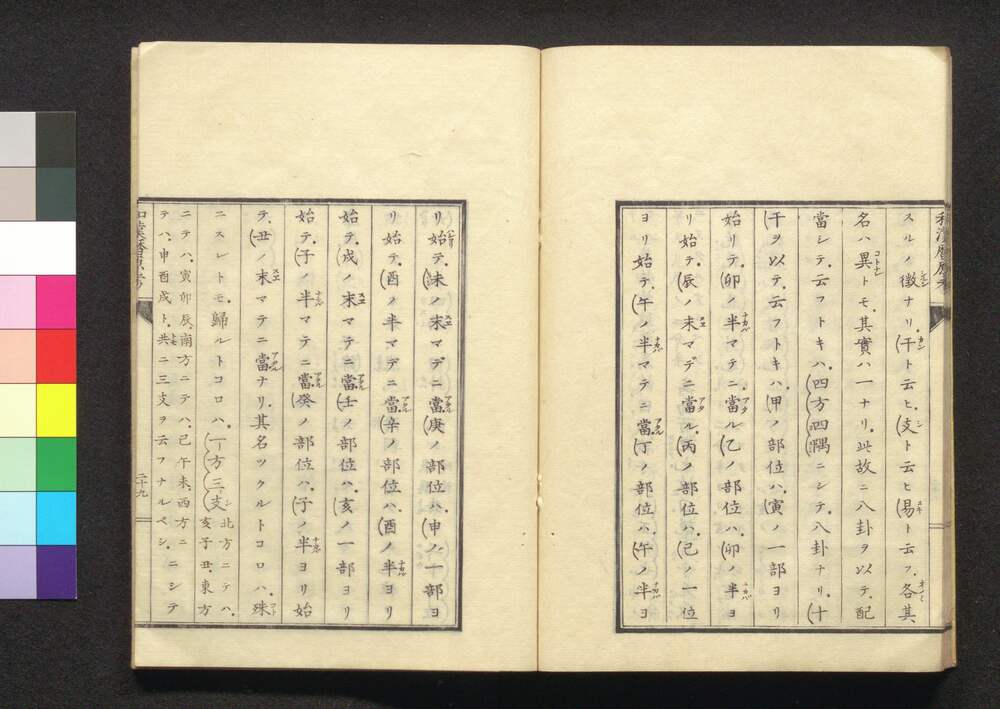 スルノ徴ナリ。(干ト云ヒ。(支ト云ヒ(易ト云フ。各其
名ハ異トモ。其實ハ一ナリ。此故ニ八卦ヲ以テ。配
當シテ。云フトキハ。(四方(四隅ニシテ。八卦ナリ。(十
干ヲ以テ。云フトキハ。(甲ノ部位ハ。(寅ノ一部ヨリ
始リテ。(卯ノ半マテニ。當ル(乙ノ部位ハ。(卯ノ半ヨ
リ始テ。(辰ノ末マデニ當ル。(丙ノ部位ハ。(巳ノ一位
ヨリ始テ。(午ノ半マテニ當。(丁ノ部位ハ。(午ノ半ヨ
リ始テ。(未ノ末マデニ當。(庚ノ部位ハ。(申ノ一部ヨ
リ始テ。(酉ノ半マデニ當。(辛ノ部位ハ。(酉ノ半ヨリ
始テ。(戌ノ末マテニ當。(壬ノ部位ハ。(亥ノ一部ヨリ
始テ。(子ノ半マテニ當。(癸ノ部位ハ。(子ノ半ヨリ始
テ。(丑ノ末マテニ當ナリ。其名ツクルトコロハ。殊
ニスレトモ。歸ルトコロハ。(一方(三支北方ニテハ。
亥子丑。東方
ニテハ。寅卯辰。南方ニテハ。巳午未。西方ニ
テハ。申酉戌ト。共ニ三支ヲ云フナルベシ。ニシテ
二十九